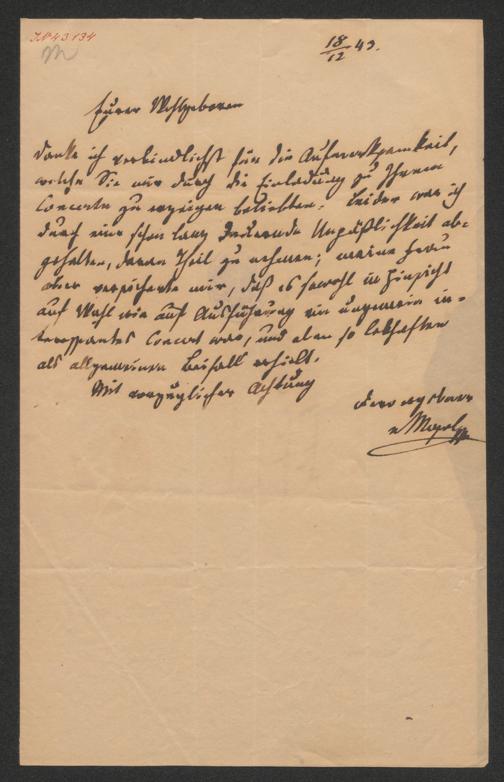 I.N 43.134
18/12 43.
Euer Wohlgeboren
danke ich verbindlichst für die Aufmerksamkeit,
welche Sie mir durch die Einladung zu Ihrem
Concerte zu erzeigen beliebten. Leider war ich
durch eine schon lang dauernde Unpäßlichkeit ab-
gehalten, daran Theil zu nehmen; meine Frau
aber versicherte mir, daß es sowohl in Hinsicht
auf Wahl wie auf Ausführung ein ungemein in-
teressantes Concert war, und eben so lebhaften
als allgemeinen Beifall erhielt.
Mit vorzüglicher Achtung
ergebener
v Mosel